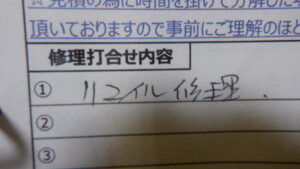 ☆見積の為に時間を掛けて分解した
頂いておりますので事前にご理解のほど
修理打合せ内容
① リコイル修理.
②
③